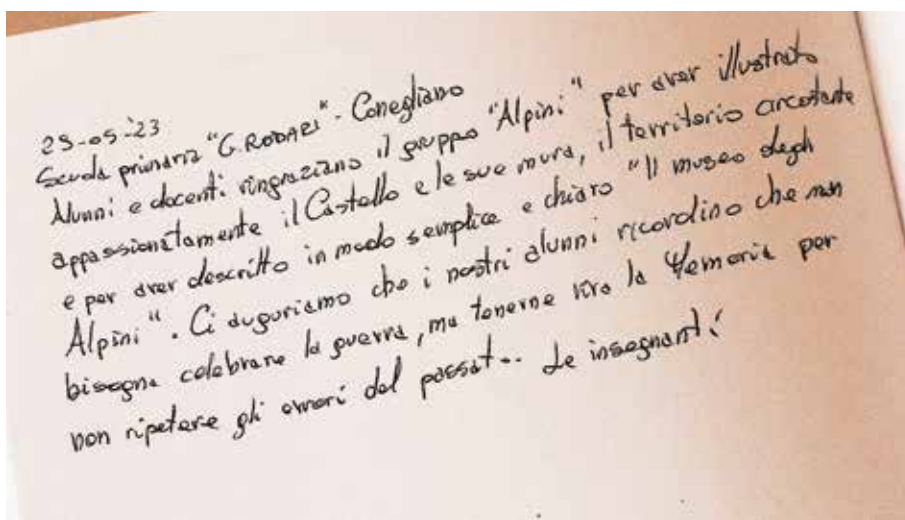 29-05-'23
Scuola primaria "G. RODARI" - Conegliano
Alunni e docenti ringraziano il gruppo "Alpini" per aver illustrato
appassionatamente il Castello e le sue mura, il territorio circostante
e per aver descritto in modo semplice e chiaro "Il museo degli
Alpini". Ci auguriamo che i nostri alunni ricordino che non
bisogna celebrare la guerra, ma tenerne viva la Memoria per
non ripetere gli errori del passat.. Le insegnanti